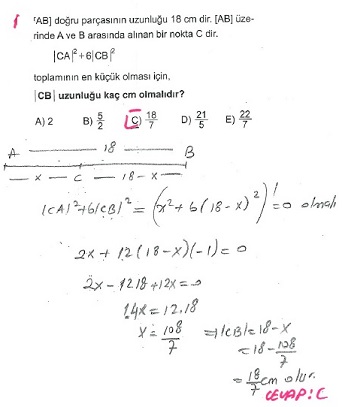 [AB] doğru parçasının uzunluğu 18 cm dir. [AB] üze-
rinde A ve B arasında alınan bir nokta C dir.
|CA|²+6|CB|²
toplamının en küçük olması için,
|CB| uzunluğu kaç cm olmalıdır?
A) 2 B) 5/2 C) 18/7 D) 21/5 E) 22/7
A 18 B
x C 18-x
|CA|²+6|CB|² = (x²+6(18-x)²)' = 0 olmalı
2x + 12(18-x)(-1) = 0
2x - 12.18 + 12x = 0
14x = 12.18
x = 108/7 ⇒ |CB| = 18-x
= 18 - 108/7
= 18/7 cm olur.
CEVAP: C